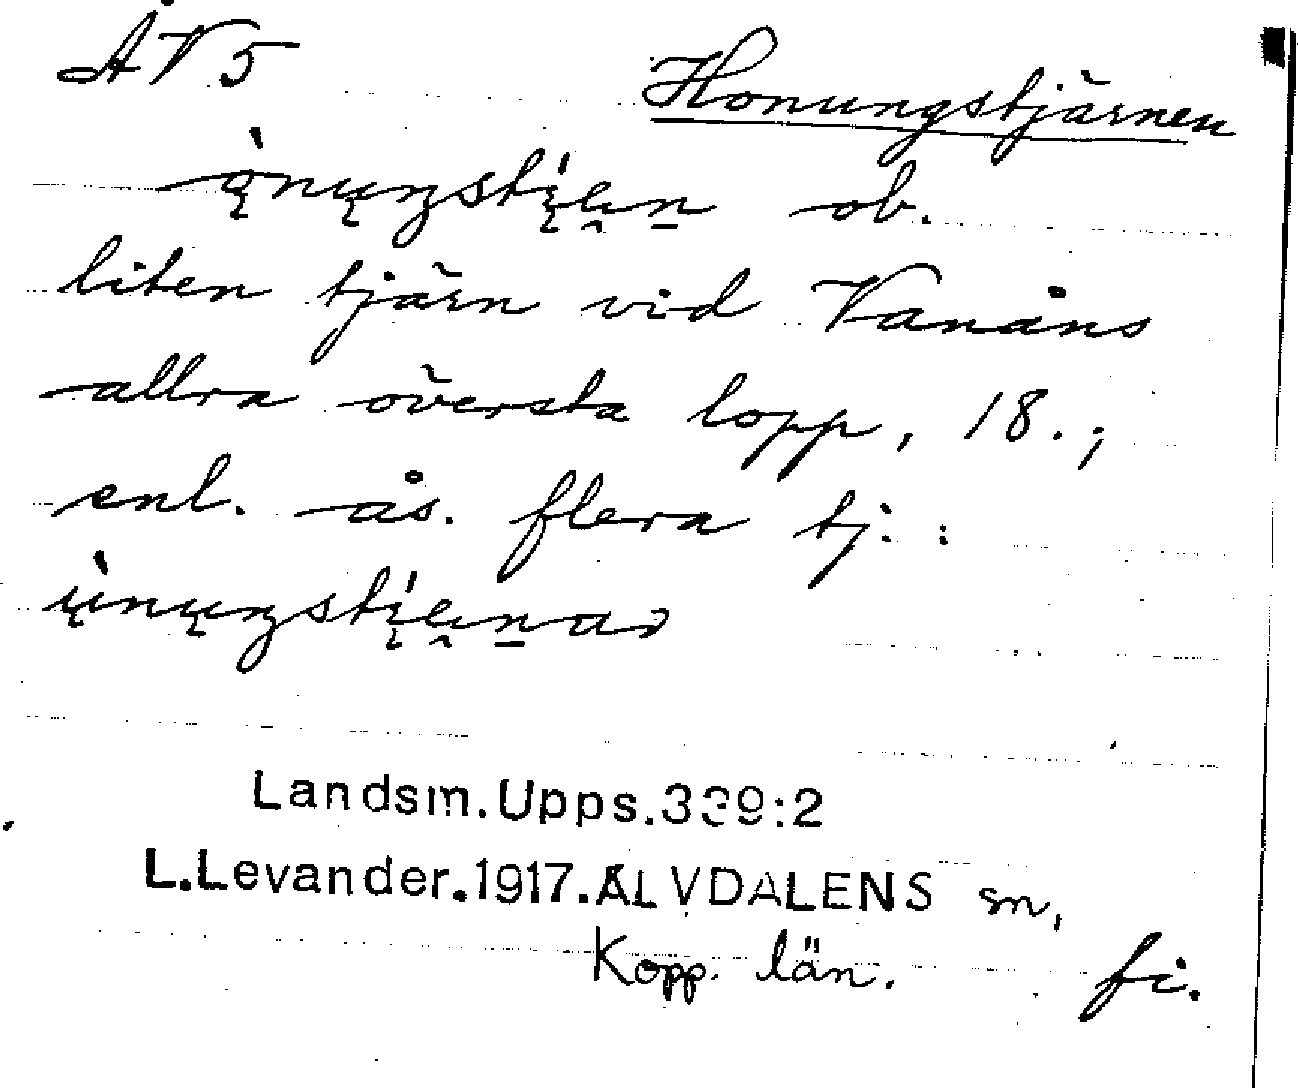 ÅV5
Honungstjärnen
ob.
liten tjärn vid Vanåns
allra översta lopp, 18.;
enl. ås. flera tj. :
Landsm.Upps.339:2
L.Levander.1917.ÄLVDALENS sn,
Kopp. län. fi.